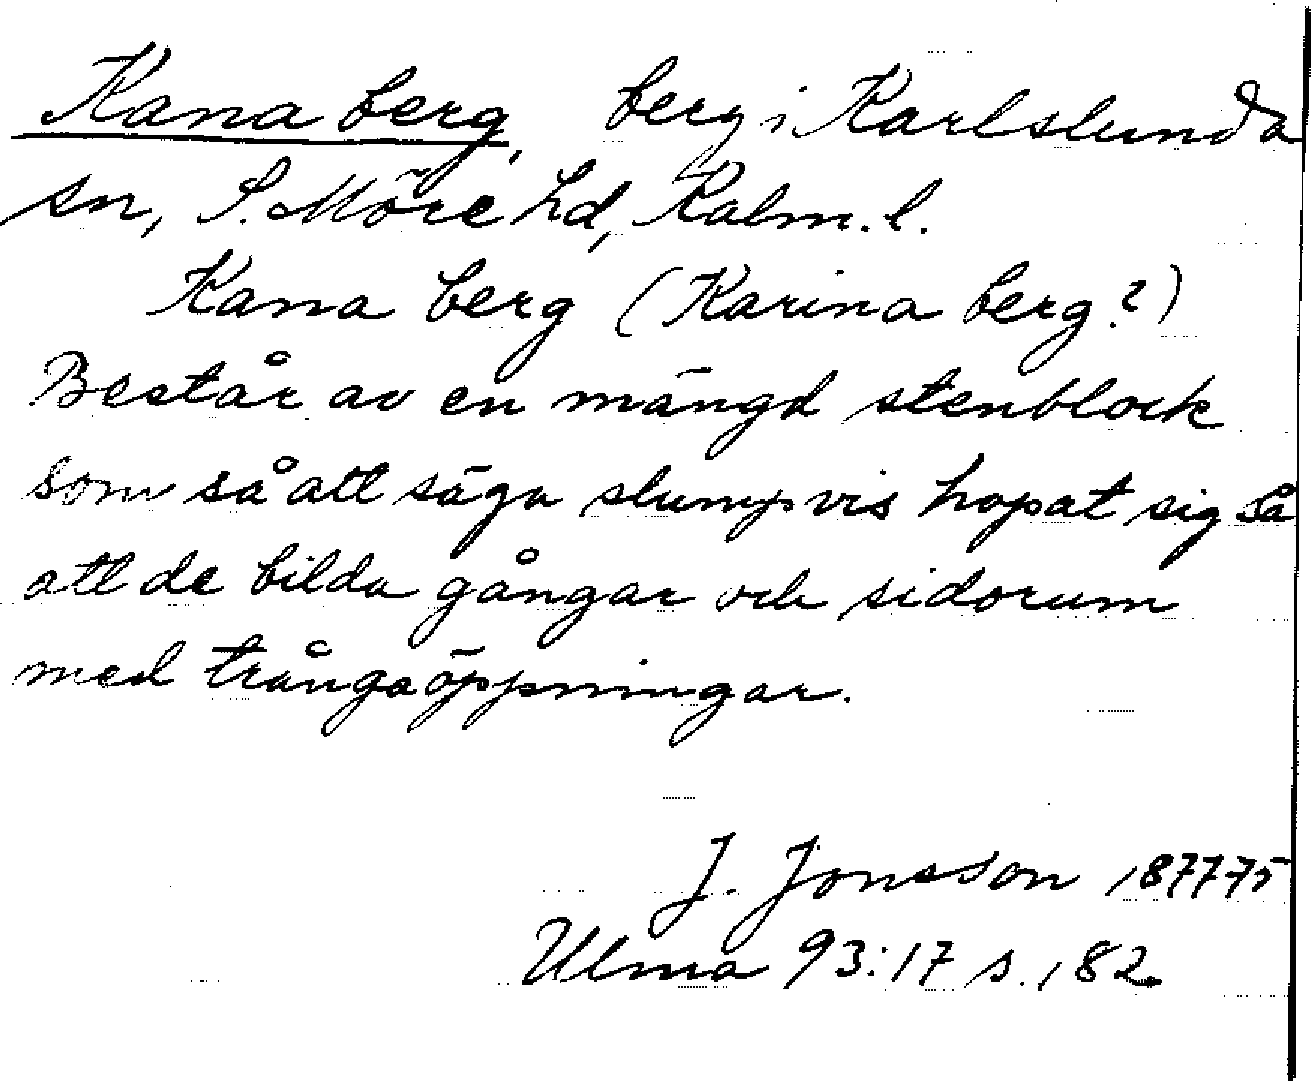 Kana berg, berg i Karlslunda
sn, S. Möre hd, Kalm. l.
Kana berg (Karina berg?)
Består av en mängd stenblock
som så att säga slumpvis hopat sig så
att de bilda gångar och sidorum
med trånga öppningar.
J. Jonsson 187775
Ulma 93:17 s. 182.